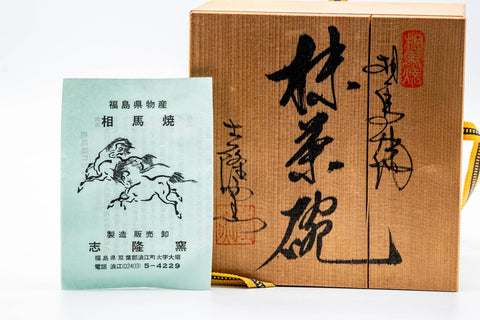 福島県物産
相馬焼
製造販売卸
志隆窯
福島県双葉郡浪江町大字大堀
電話 浪江(02403) 5-4229
抹茶碗
志隆窯